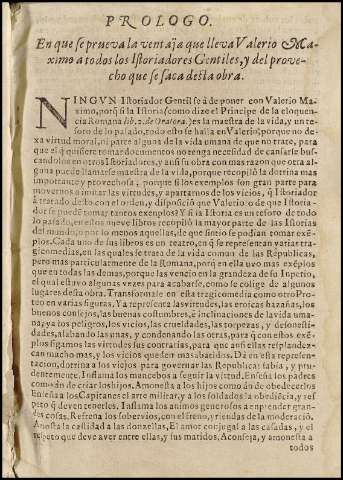 PROLOGO.
En que se prueva la ventaja que lleva Valerio Ma-
ximo a todos los Istoriadores Gentiles, y del prove-
cho que se saca desta obra.
NINGVN Istoriador Gentil se à de poner con Valerio Ma-
ximo, porq̃ si la Istoria (como dize el Principe de la eloquen-
cia Romana lib. 2. de Oratore.) es la maestra de la vida, y un te-
soro de lo passado, todo esto se halla en Valerio; porque no de-
xa virtud moral, ni parte alguna de la vida umana de que no trate, para
que el q̃ quisiere tomar documentos no tenga necesidad de cansarse bus-
candolos en otros Istoriadores, y ansi su obra con mas razon que otra al-
guna puede llamarse maestra de la vida, porque recopilò la dotrina mas
importante y provechosa; porque si los exemplos son gran parte para
movernos a imitar las virtudes, y apartarnos de los vicios, q̃ Istoriador
à tratado desto con el orden, y disposiciõ que Valerio? o de que Istoria-
dor se puedẽ tomar tantos exemplos? Y si la Istoria es un tesoro de todo
lo pasado, en estos nueve libros recopilò la mayor parte de las Istorias
del mundo, o por lo menos aquellas, de que sintio se podian tomar exẽ-
plos. Cada uno de sus libros es un teatro, en q̃ se representan varias tra-
gicomedias, en las quales se trata de la vida comun de las Republicas,
pero mas particularmente de la Romana, porq̃ en ella uvo mas exẽplos
que en todas las demas, porque las vencio en la grandeza de su Inperio,
el qual estuvo algunas vezes para acabarse, como se colige de algunos
lugares desta obra. Transformase en esta tragicomedia como otro Pro-
teo en varias figuras. Ya representa las virtudes, las eroicas hazañas, los
buenos consejos, las buenas costumbres, è inclinaciones de la vida uma-
na; ya los peligros, los vicios, las crueldades, las torpezas, y desonesti-
dades, alabando las unas, y condenando las otras, para q̃ con estos exẽ-
plos sigamos las virtudes sus contrarias, para que ansi ellas resplandez-
can mucho mas, y los vicios queden mas abatidos. Dà en esta represen-
tacion, dotrina a los viejos para governar las Republicas sabia, y pru-
dentemente. Inflama los mancebos a seguir la virtud. Enseña los padres
como àn de criar los hijos. Amonesta a los hijos como àn de obedecerlos
Enseña a los Capitanes el arte militar, y a los soldados la obediẽcia, y res
peto q̃ deven tenerles. Inflama los animos generosos a enprender gran-
des cosas. Refrena los sobervios, con el freno, y riendas de la moderaciõ.
Amosta la castidad a las donzellas, El amor conjugal a las casadas, y el
respeto que deve aver entre ellas, y sus maridos. Aconseja, y amonesta a
todos